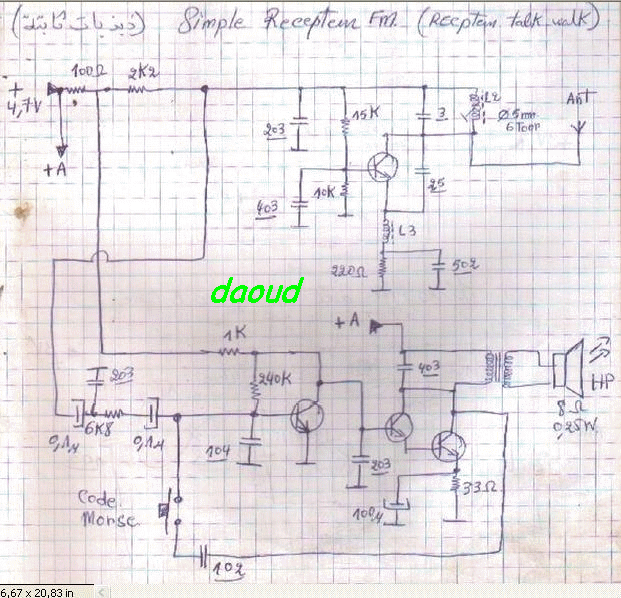 (ذبذبات ثابتة) Simple Recepteur FM. (Recptem talk walk)
+ 4,7V
100Ω
2K2
+A
203
15K
3
L2
Ø 5 mm
6 Tour
Ant
403
10K
25
L3
220Ω
502
daoud
+A
1K
203
240K
403
HP
8 Ω
0,25W
0,1μ
6K8
0,1μ
104
203
100μ
33Ω
Code
Morse
102
6,67 x 20,83 in